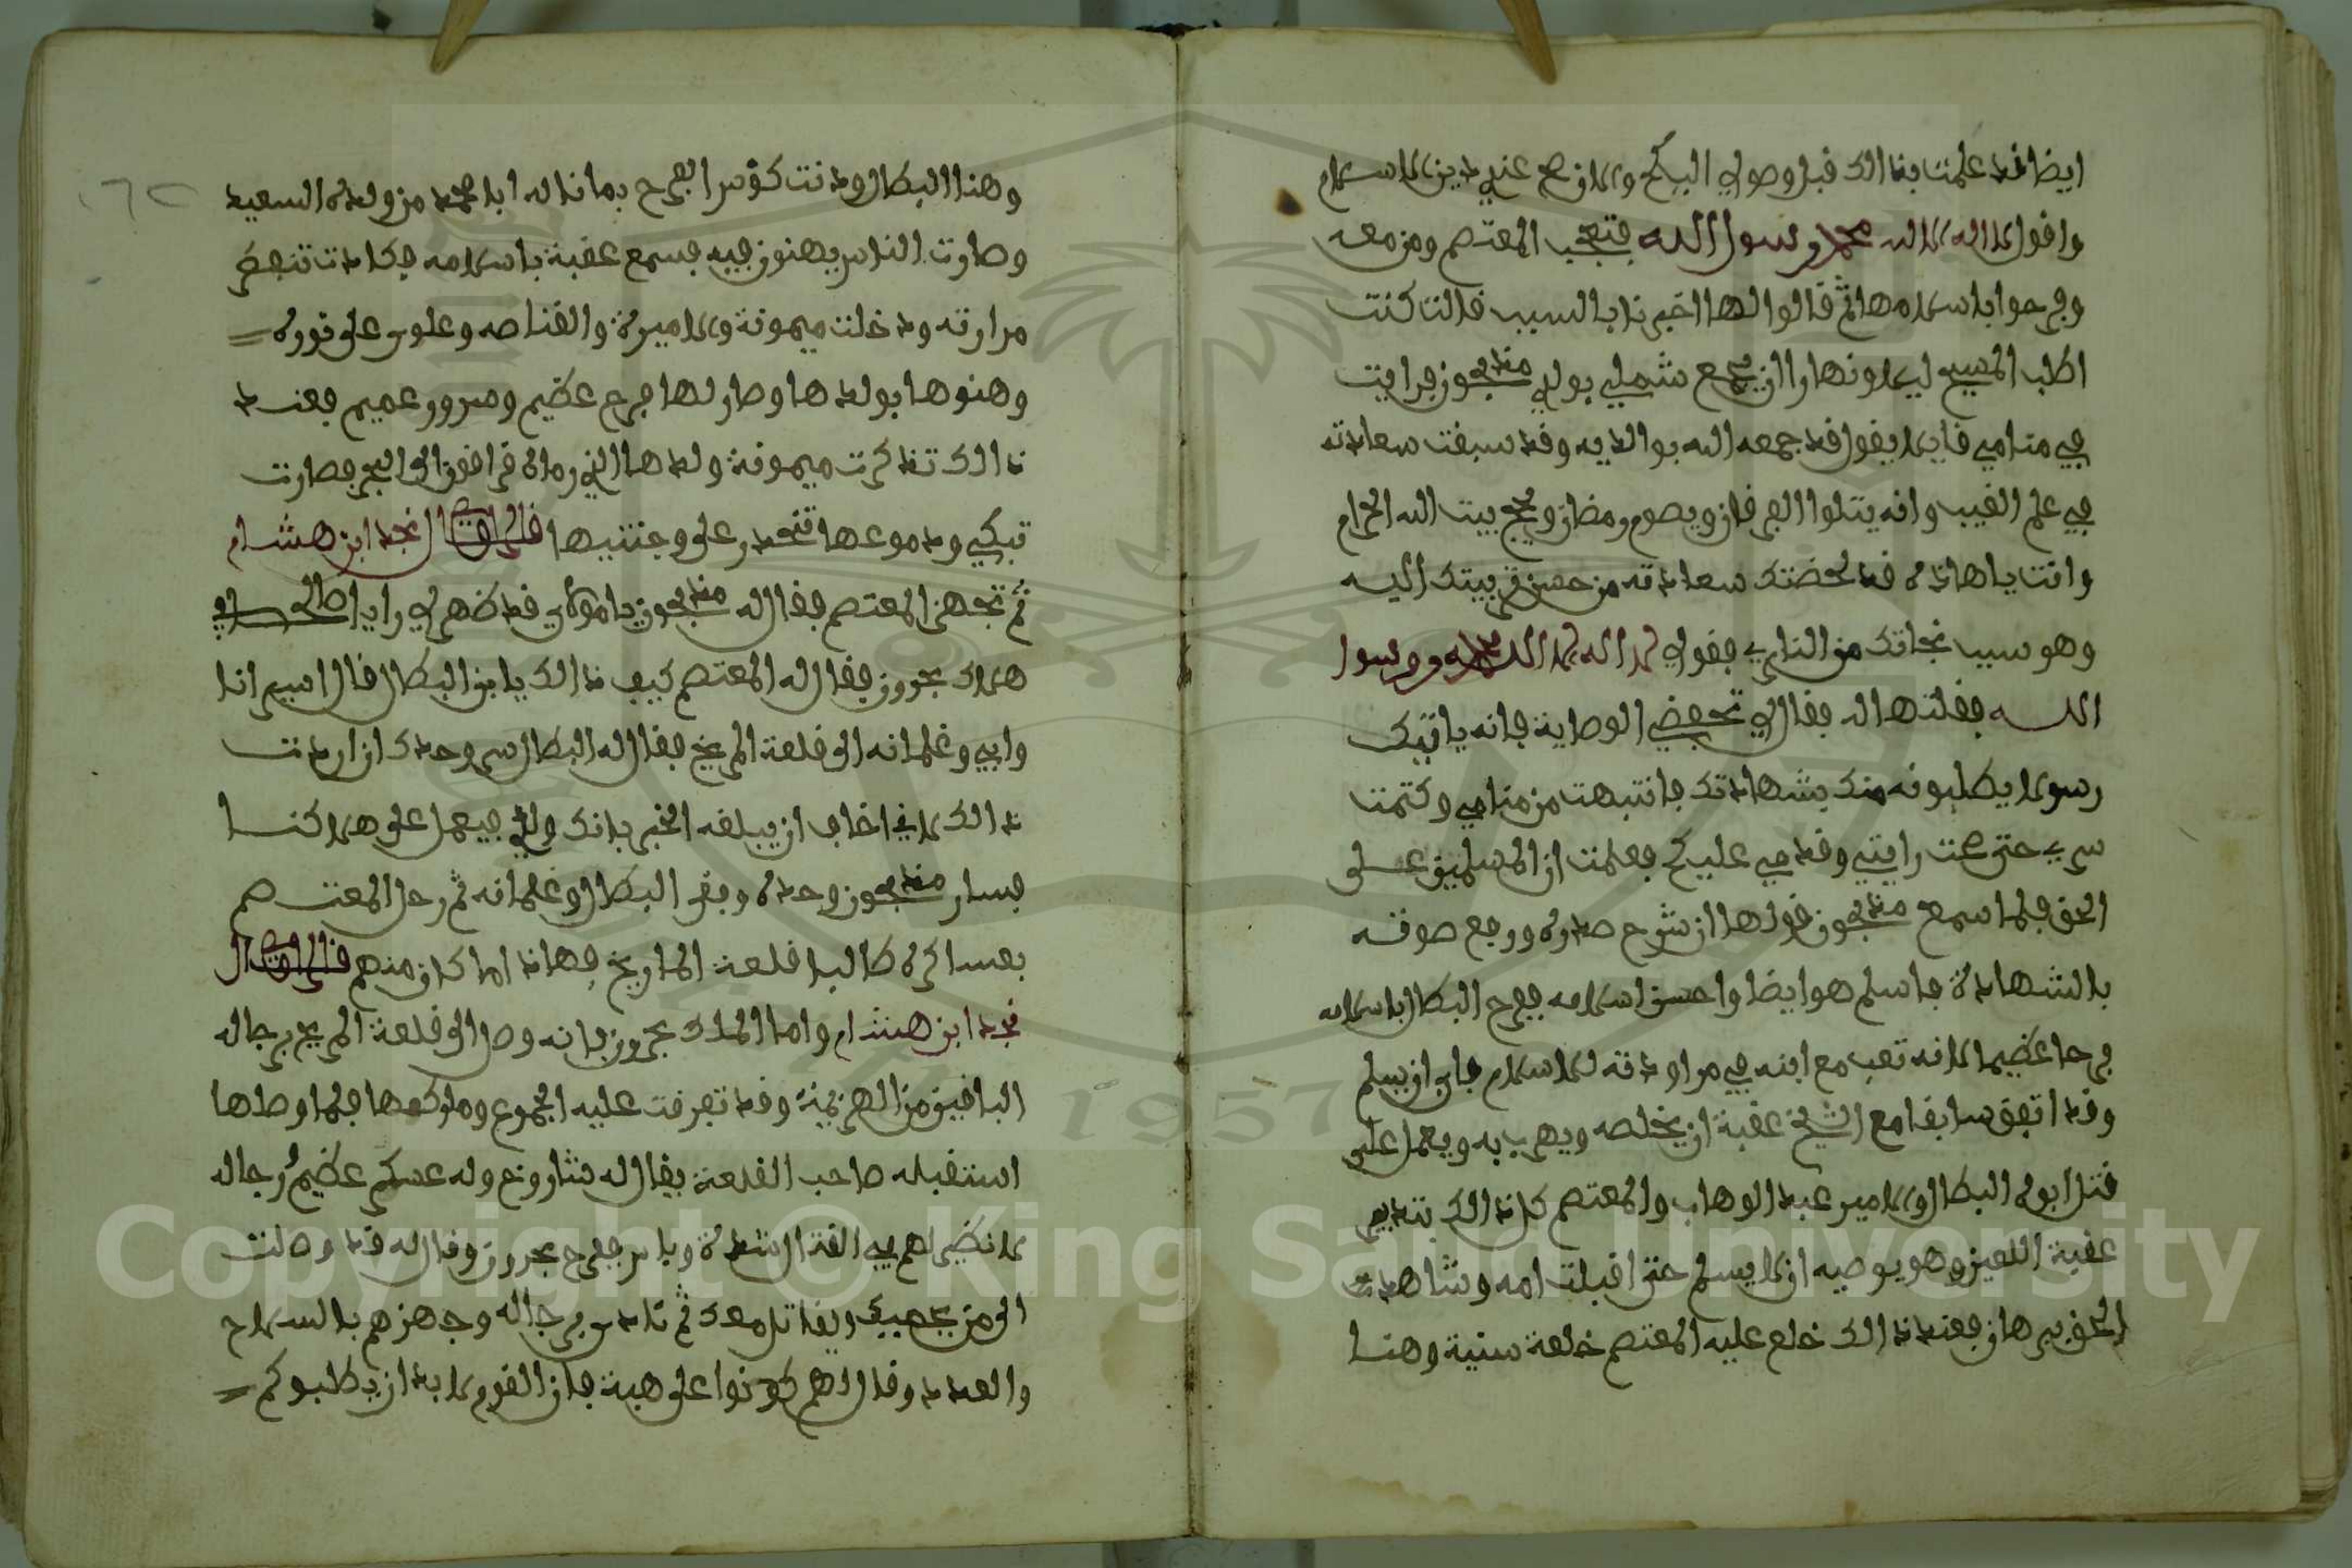 ايضا قد علمت بذالك قبل وصولي اليكم والان صح عندي دين الاسلام
واقول لا اله الا الله محمد رسول الله فتعجب المعتصم ومن معه
وفرحوا باسلامها ثم قالوا لها اخبرنا بالسبب قالت كنت
اطلب المسيح ليلا ونهارا ان يجمع شملي بولدي مذبحون فرايت
في منامي قايلا يقول قد جمعه الله بوالديه وقد سبقت سعادته
في علم الغيب وانه يتلوا القرءان ويصوم رمضان ويحج بيت الله الحرام
وانت ياهاذه قد لحضتك سعادته من حسن تربيتك اليه
وهو سبب نجاتك من النار فقولي لا اله الا الله محمد رسول
الله فقلتها له فقال لي تحفضي الوصاية فانه ياتيك
رسولا يطلبونه منك بشهادتك فانتبهت من منامي وكتمت
سري حتى رايتني وقدمي عليكم فعلمت ان المسلمين على
الحق فلما سمع مذبحون قولها انشرح صدره ورفع صوته
بالشهادة فاسلم هو ايضا واحسن اسلامه ففرح البطال باسلامه
فرحا عظيما لانه تعب مع ابنه في مراودته للاسلام فابى ان يسلم
وقد اتفق سابقا مع الشيخ عقبة ان يخلصه ويهرب به ويعمل على
قتل ابوه البطال والامير عبد الوهاب والمعتصم كل ذالك بتدبير
عقبة اللعين وهو يوصيه ان لا يسلم حتى اقبلت امه وشاهدت
الحق برهان فعند ذالك خلع عليه المعتصم خلعة سنية وهنا
وهنا البطال ودنت كؤس الفرح بما ناله ابا محمد من ولده السعيد
وصارت الناس يهنون فيه فسمع عقبة باسلامه فكادت تنفطر
مرارته ودخلت ميمونة والاميرة والقناصه وعلوس على نوره
وهنوها بولدها وصار لها فرح عظيم وسرور عميم فعند
ذالك تذكرت ميمونة ولدها الذي رماه قراقونه الى البحر فصارت
تبكي ودموعها تنحدر على وجنتيها قال نجد ابن هشام
ثم تجهز المعتصم فقال له مذبحون يا مولاي قد ظهر لي رايا صالح في
هلاك بحرون فقال له المعتصم كيف ذالك يا ابن البطال قال اسير انا
وابي وغلمانه الى قلعة المريخ فقال له البطال سر وحدك ان اردت
ذالك لاني اخاف ان يبلغه الخبر بانك ولدي فيعمل على هلاكنا
فسار مذبحون وحده وبقى البطال وغلمانه ثم رحل المعتصم
بعساكره طالبا قلعة الماريخ فهاذا ما كان منهم قال
نجد ابن هشام واما الملك بحرون فانه وصل الى قلعة المريخ برجاله
الباقين من الهزيمة وقد تفرقت عليه الجموع وملوكها فلما وصلها
استقبله صاحب القلعة يقال له شارونع وله عسكر عظيم رجاله
لا نظير لهم في القتال شدة وباس ففرح بحرون وقال له قد وصلت
الى من يحميك ويقاتل معك ثم نادى برجاله وجهزهم بالسلاح
والعدد وقال لهم كونوا على هبة فان القوم لا بد ان يطلبوكم